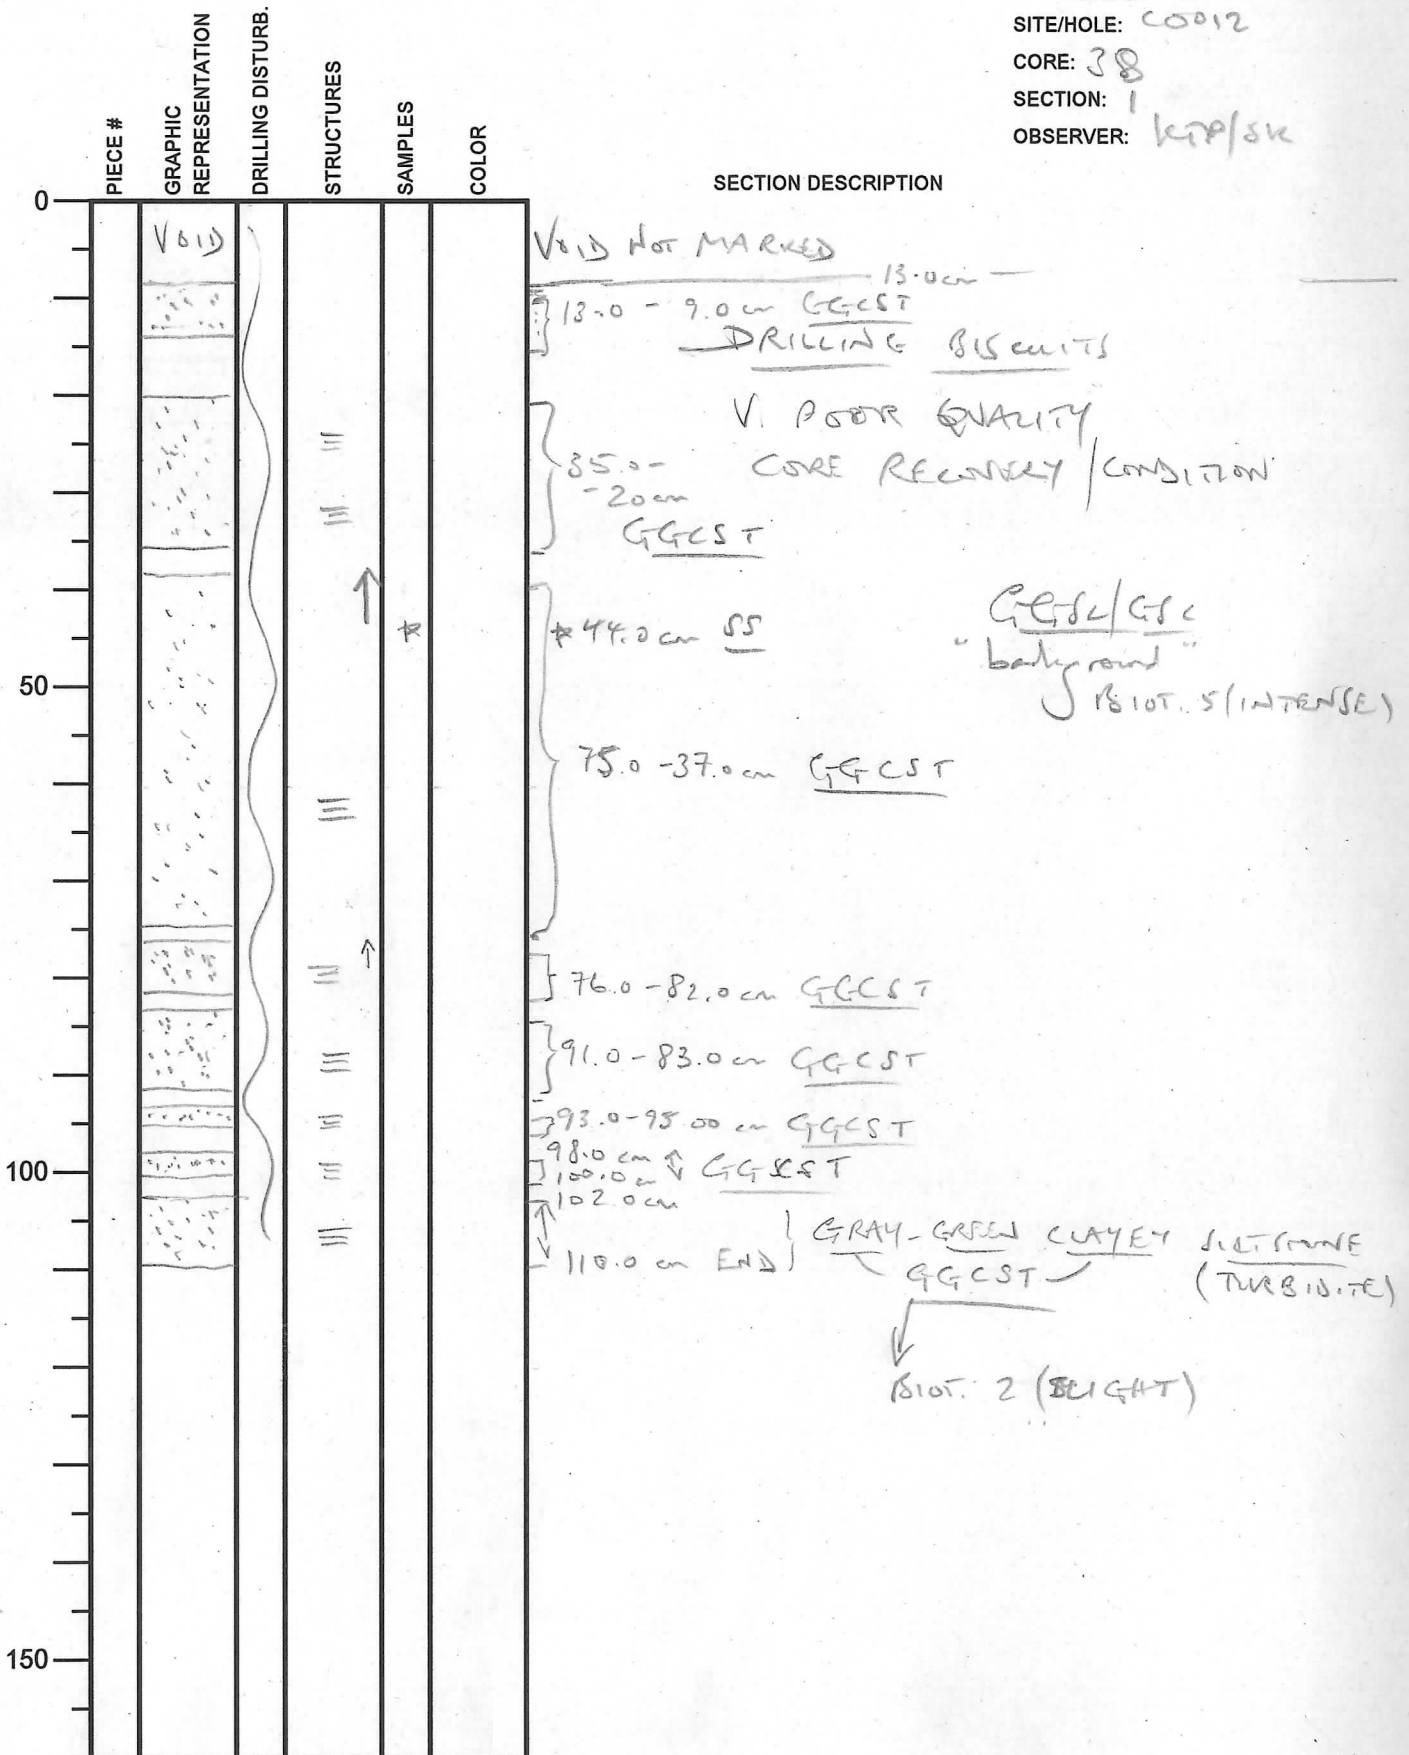 SITE/HOLE: C0012
CORE: 38
SECTION: 1
OBSERVER: KTP/SK
PIECE #
GRAPHIC
REPRESENTATION
DRILLING DISTURB.
STRUCTURES
SAMPLES
COLOR
SECTION DESCRIPTION
0
VOID
VOID NOT MARKED
13.0cm
13.0 - 9.0 cm GGCST
DRILLING BISCUITS
V. POOR QUALITY
CORE RECOVERY/CONDITION
35.0-
-20cm
GGCST
*
* 44.0 cm SS
GGSC/GSC
"background"
BIOT. 5 (INTENSE)
50
75.0-37.0cm GGCST
76.0-82.0 cm GGCST
91.0-83.0 cm GGCST
93.0-95.00 cm GGCST
98.0 cm
100.0 cm GGCST
100
102.0cm
110.0 cm END
GRAY-GREEN CLAYEY SILTSTONE
GGCST
(TURBIDITE)
BIOT. 2 (SLIGHT)
150